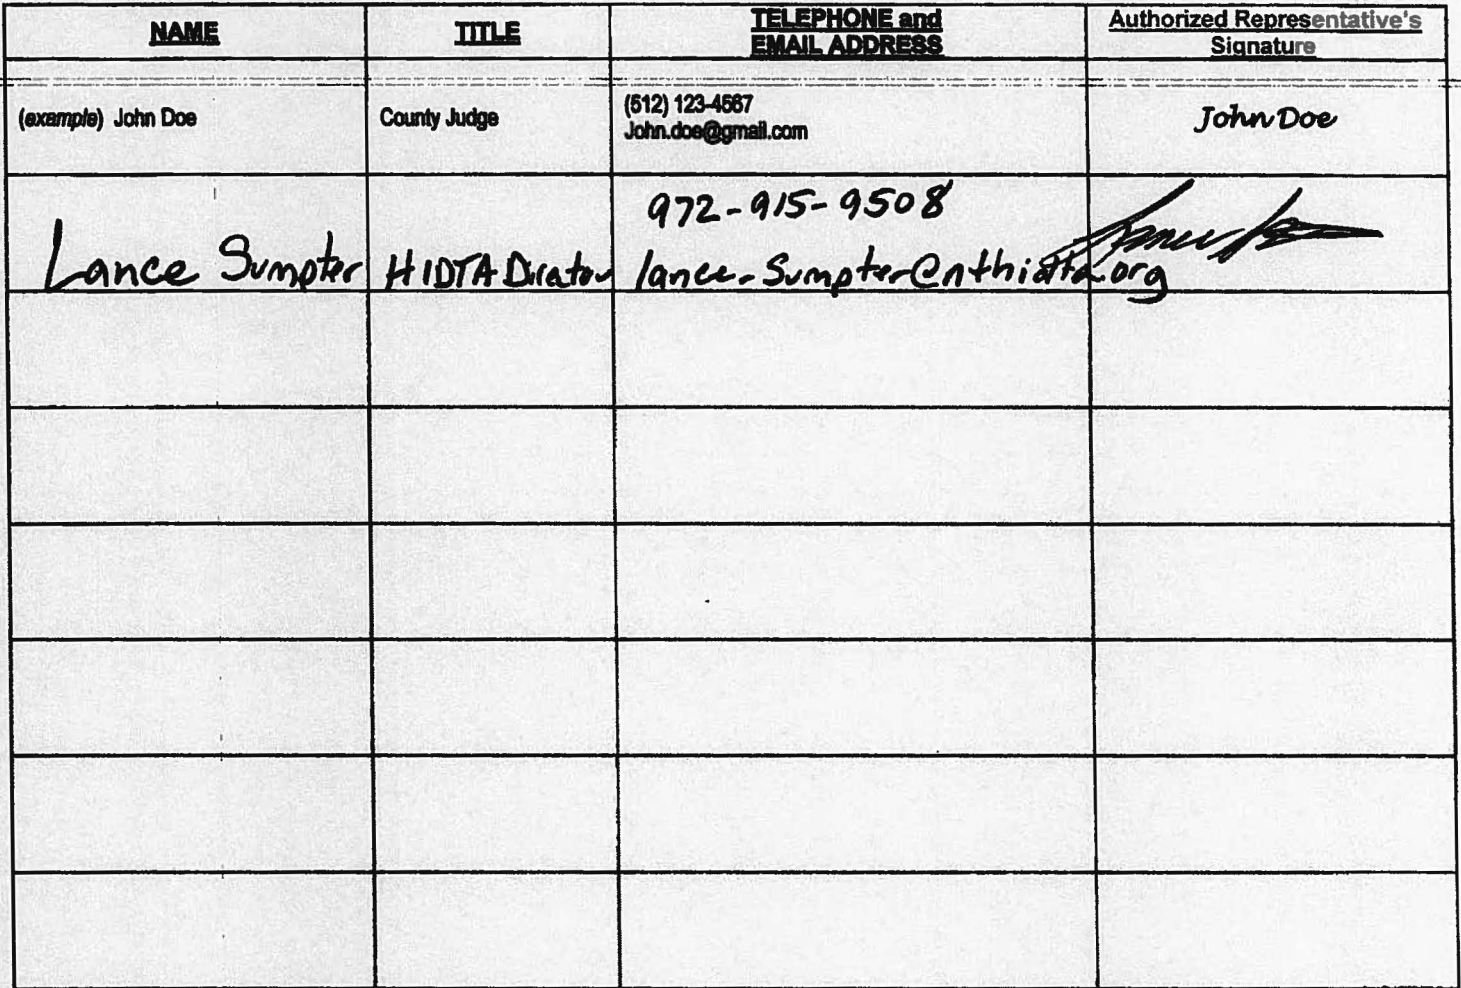 NAME
TITLE
TELEPHONE and
EMAIL ADDRESS
Authorized Representative's
Signature
(example) John Doe
County Judge
(512) 123-4567
John.doe@gmail.com
John Doe
Lance Sumpter
HIDTA Director
972-915-9508
lance-Sumpter@nthidta.org